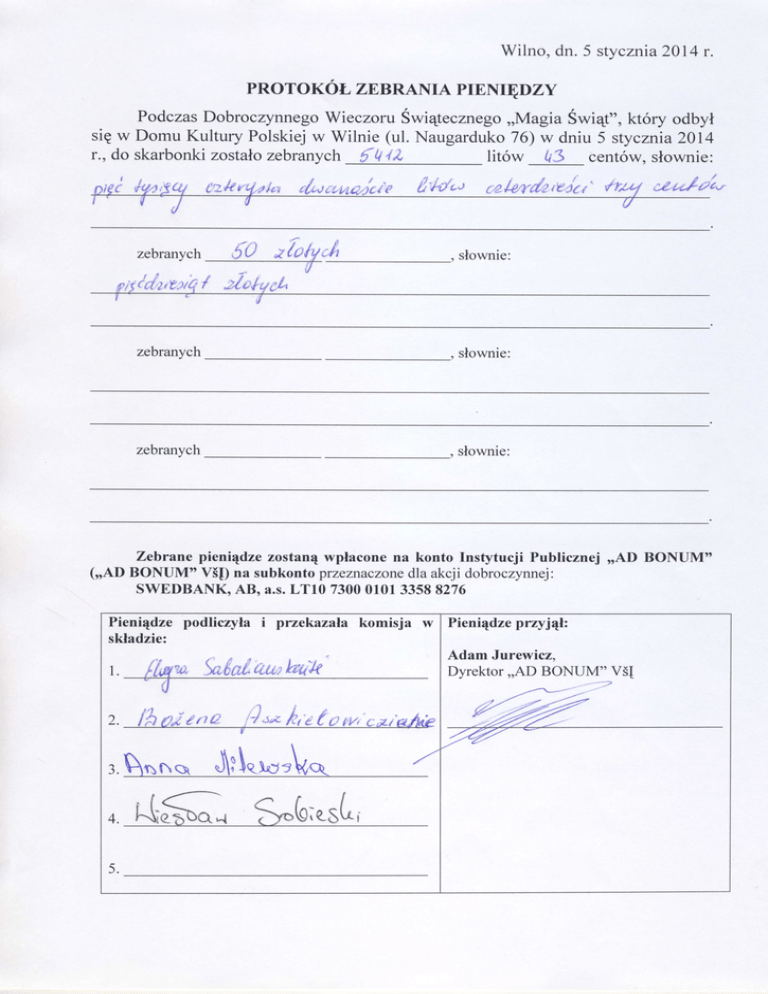 Wilno, dn. 5 stycznia 2014 r.
PROTOKÓŁ ZEBRANIA PIENIĘDZY
Podczas Dobroczynnego Wieczoru Świątecznego „Magia Świąt”, który odbył
się w Domu Kultury Polskiej w Wilnie (ul. Naugarduko 76) w dniu 5 stycznia 2014
r., do skarbonki zostało zebranych 5412 litów 43 centów, słownie:
pięć tysięcy czterysta dwanaście litów czterdzieści trzy centów
zebranych 50 złotych, słownie:
pięćdziesiąt złotych
zebranych , słownie:
zebranych , słownie:
Zebrane pieniądze zostaną wpłacone na konto Instytucji Publicznej „AD BONUM”
(„AD BONUM” VšĮ) na subkonto przeznaczone dla akcji dobroczynnej:
SWEDBANK, AB, a.s. LT10 7300 0101 3358 8276
Pieniądze podliczyła i przekazała komisja w
składzie:
1. Sabaliauskaitė
2. Bożena
3. Anna Milewska
4. Wiesław Sobieski
5.
Pieniądze przyjął:
Adam Jurewicz,
Dyrektor „AD BONUM” VšĮ